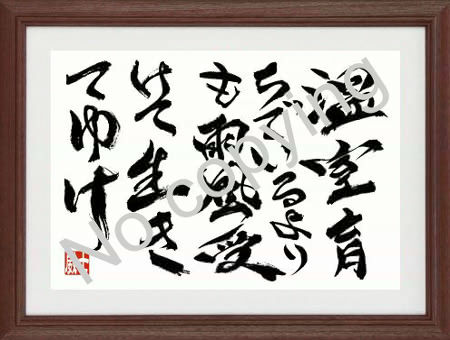 温室育
ちでいるより
も雨風受
けて生き
てゆけ
No copying